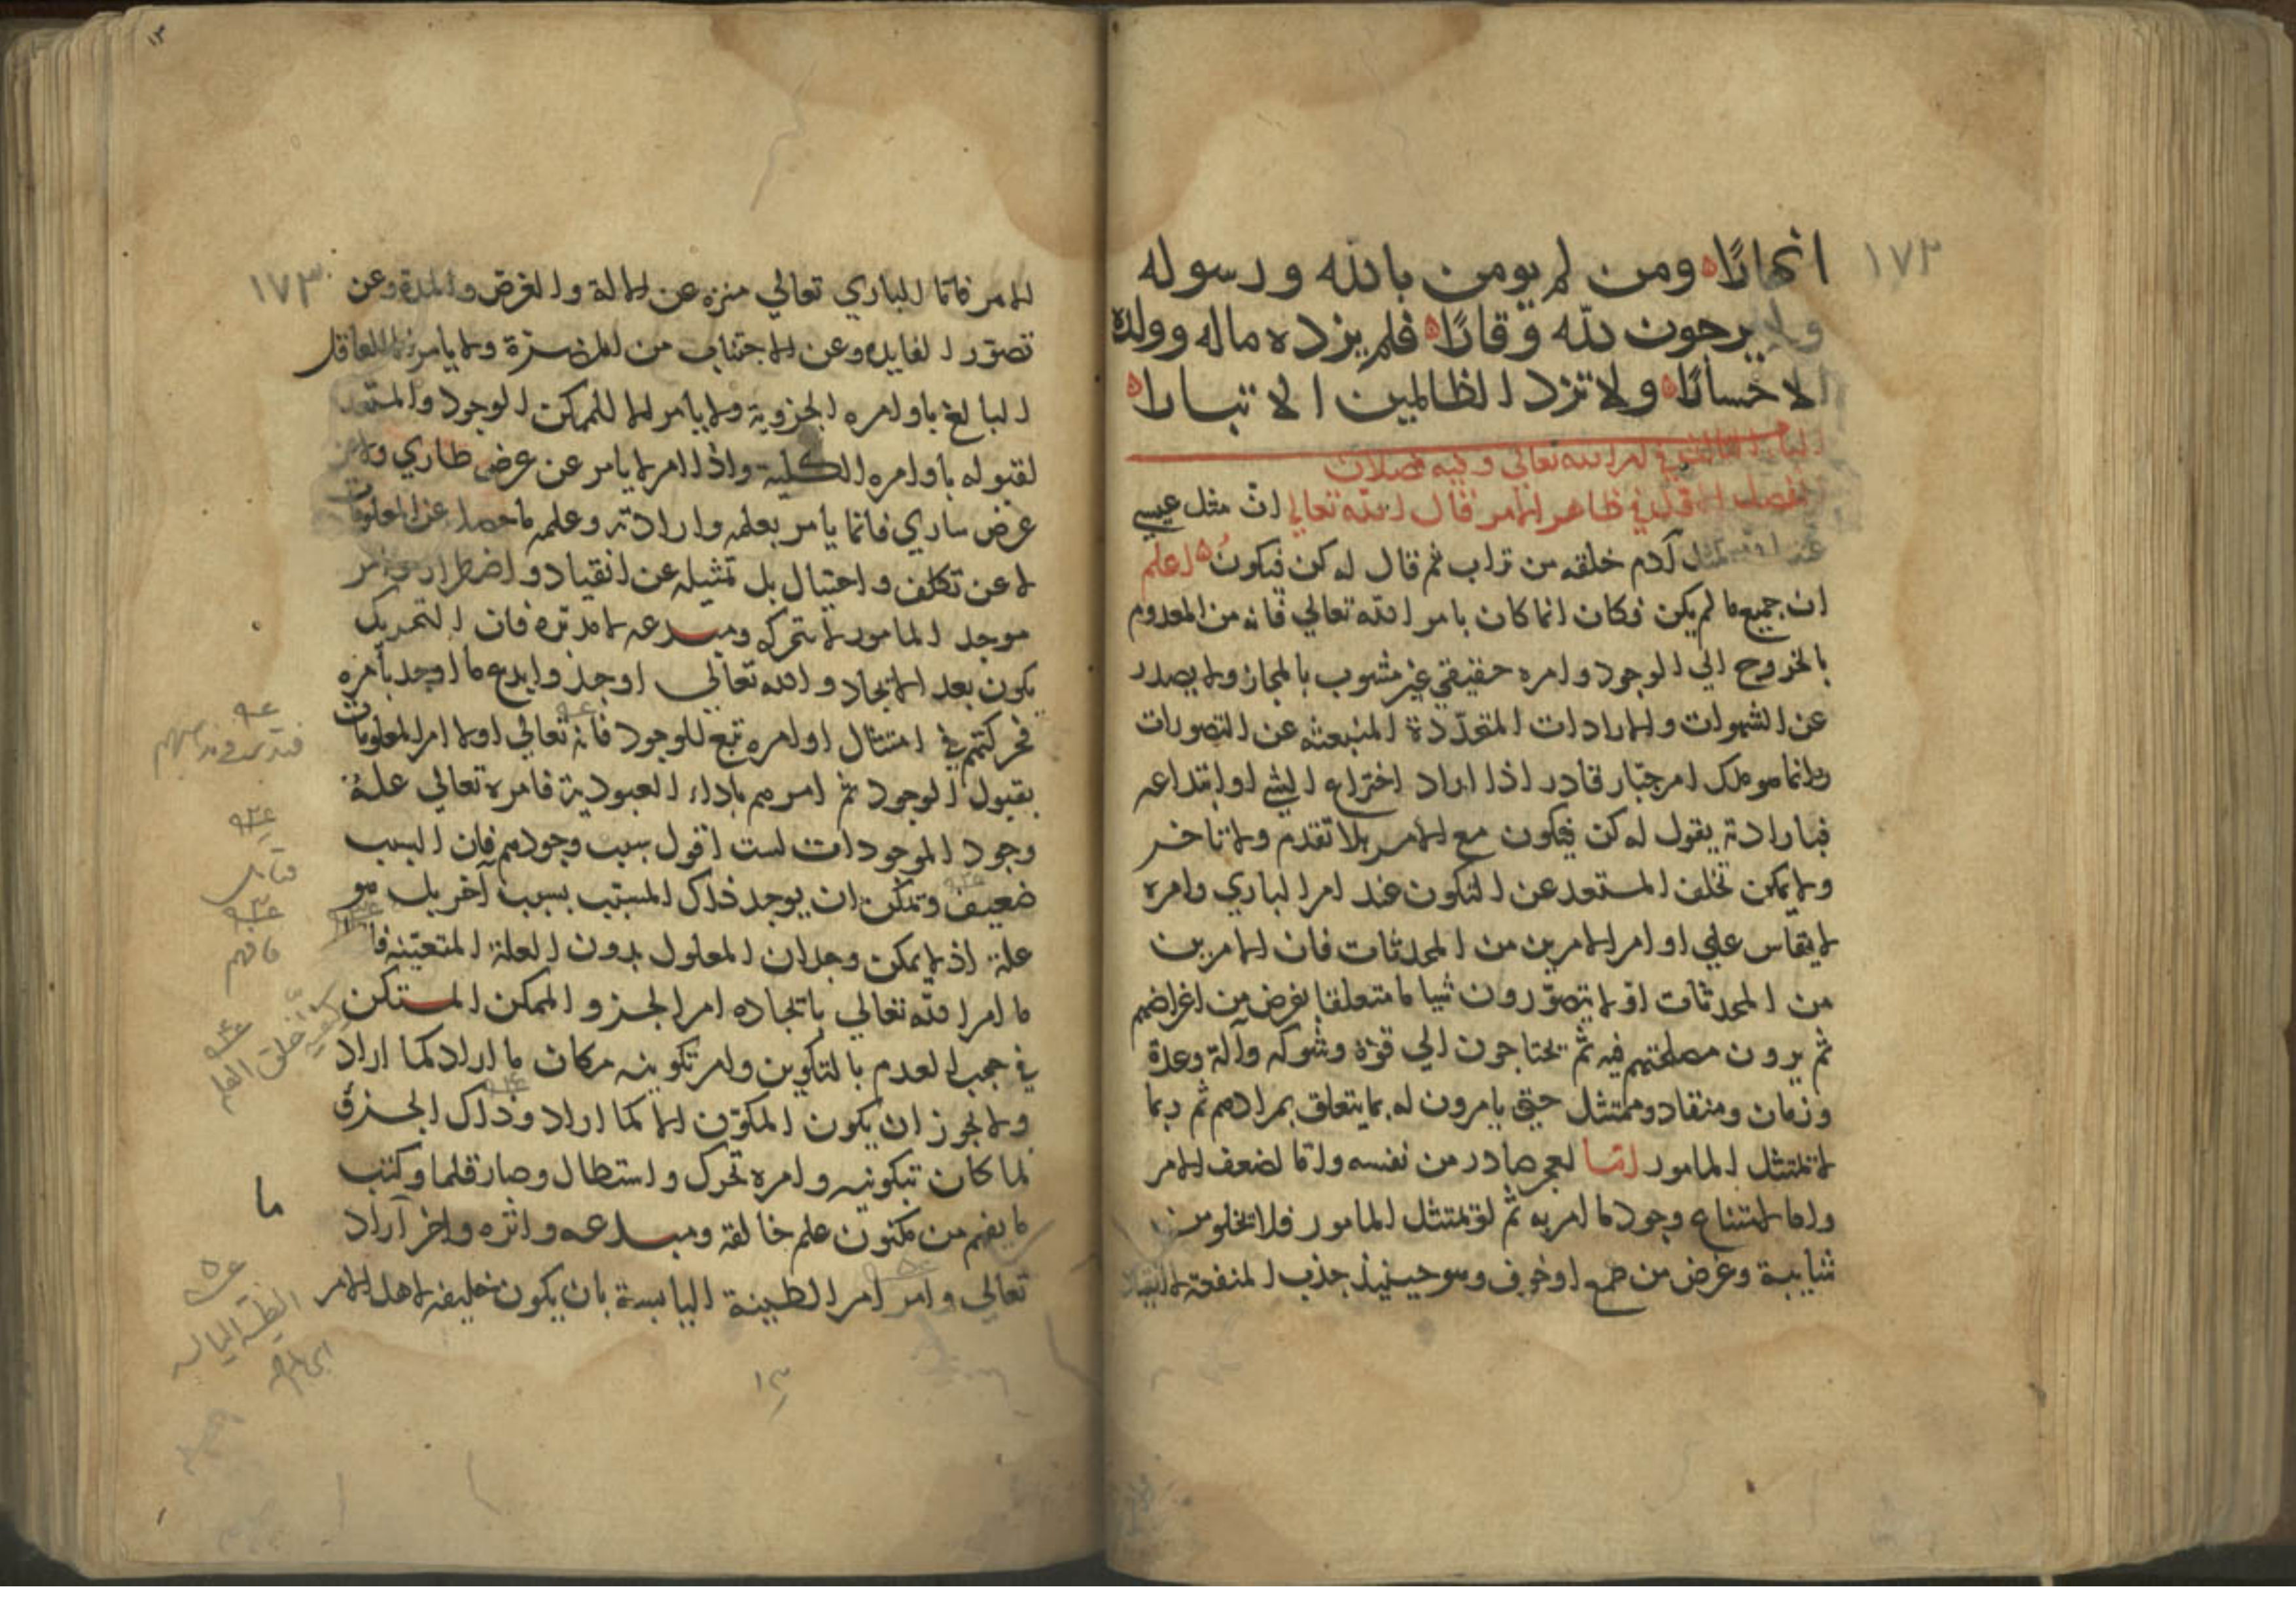 ١٧٢
انهارًا ومن لم يومن بالله ورسوله
ولا يرجون لله وقارًا فلم يزده ماله وولده
الا خسارًا ولا تزد الظالمين الا تبارا
الباب الثالث في امر الله تعالى وفيه فصلان
الفصل الاول في ظاهر الامر قال الله تعالي ان مثل عيسي
عند الله كمثل آدم خلقه من تراب ثم قال له كن فيكون اعلم
ان جميع ما لم يكن فكان انما كان بامر الله تعالي فانه من المعدوم
بالخروج الي الوجود وامره حقيقي غير مشوب بالمجاز ولا يصدر
عن الشهوات والارادات المتعددة المنبعثه عن التصورات
وانما هو ملك امر جبار قادر اذا اراد اختراع الشي او ابتداعه
فبارادته يقول له كن فيكون مع الامر بلا تقدم ولا تاخر
ولا يمكن تخلف المستعد عن التكون عند امر الباري وامره
لا يقاس علي اوامر الامرين من المحدثات فان الامرين
من المحدثات اولا يتصورون شيا ما متعلقا بغرض من اغراضهم
ثم يرون مصلحتهم فيه ثم يحتاجون الي قوة وشوكه وآلة وعدة
وزمان ومنقاد وممتثل حتي يامرون له بما يتعلق بمرادهم ثم ربما
لا يمتثل المامور اما لعجز صادر من نفسه واما لضعف الامر
واما لامتناع وجود ما امر به ثم لو يمتثل المامور فلا يخلو من
شايبة وغرض من طمع او خوف وهو حينيذ جذب المنفعة
١٧٣
الامر فاما الباري تعالي منزه عن الالة والغرض والمدة وعن
تصور الفايده وعن الاجتناب من المضرة ولا يامر العاقل
البالغ باوامره الجزوية ولا يامر الا للممكن الوجود والمستعد
لقبوله باوامره الكلية واذا امر لا يامر عن عرض طاري ولا عن
عرض ساري فانما يامر بعلمه وارادته وعلمه ما حصل عن المعلومات
لا عن تكلف واحتيال بل تمثيله عن انقياد واضطرار وامر
موجد المامور لا متحركه ومبدعه لا مدبره فان التحريك
يكون بعد الايجاد والله تعالي اوجد وابدع ما اوجد بامره
فحركتهم في امتثال اوامره تبع للوجود فانه تعالي اولا امر المعلومات
بقبول الوجود ثم امرهم باداء العبودية فامره تعالي علة
وجود الموجودات لست اقول سبب وجودهم فان السبب
ضعيف ويمكن ان يوجد ذلك المسبب بسبب آخر بل هو
علة اذ لا يمكن وجدان المعلول بدون العلة المتعينه
ما امر الله تعالي بايجاده امر الجزو الممكن المستكن
في حجب العدم بالتكوين وامر تكوينه مكان ما اراد كما اراد
ولا يجوز ان يكون المكون الا كما اراد وذلك الجزو
لما كان بتكوينه وامره تحرك واستطال وصار قلما وكتب
ما يفهم من مكنون علم خالقه ومبدعه واثره واخر آراد
تعالي وامر امر الطينة اليابسة بان يكون خليفه لاهل الامر
كيفية خلق القلم
ما
١٣